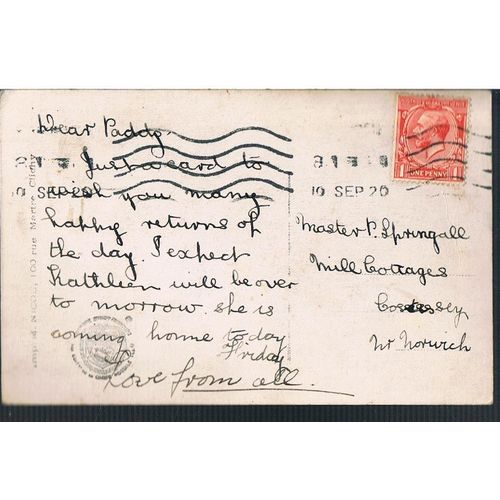 Dear Paddy
Just a card to
wish you many
happy returns of
the day. I expect
Kathleen will be over
to morrow. she is
coming home to day
Friday
Love from all.
10 SEP 20
SEP 20
ONE PENNY
Master P. Springall
Mill Cottages
Costessey
Nr Norwich
100 rue Martre, Clichy